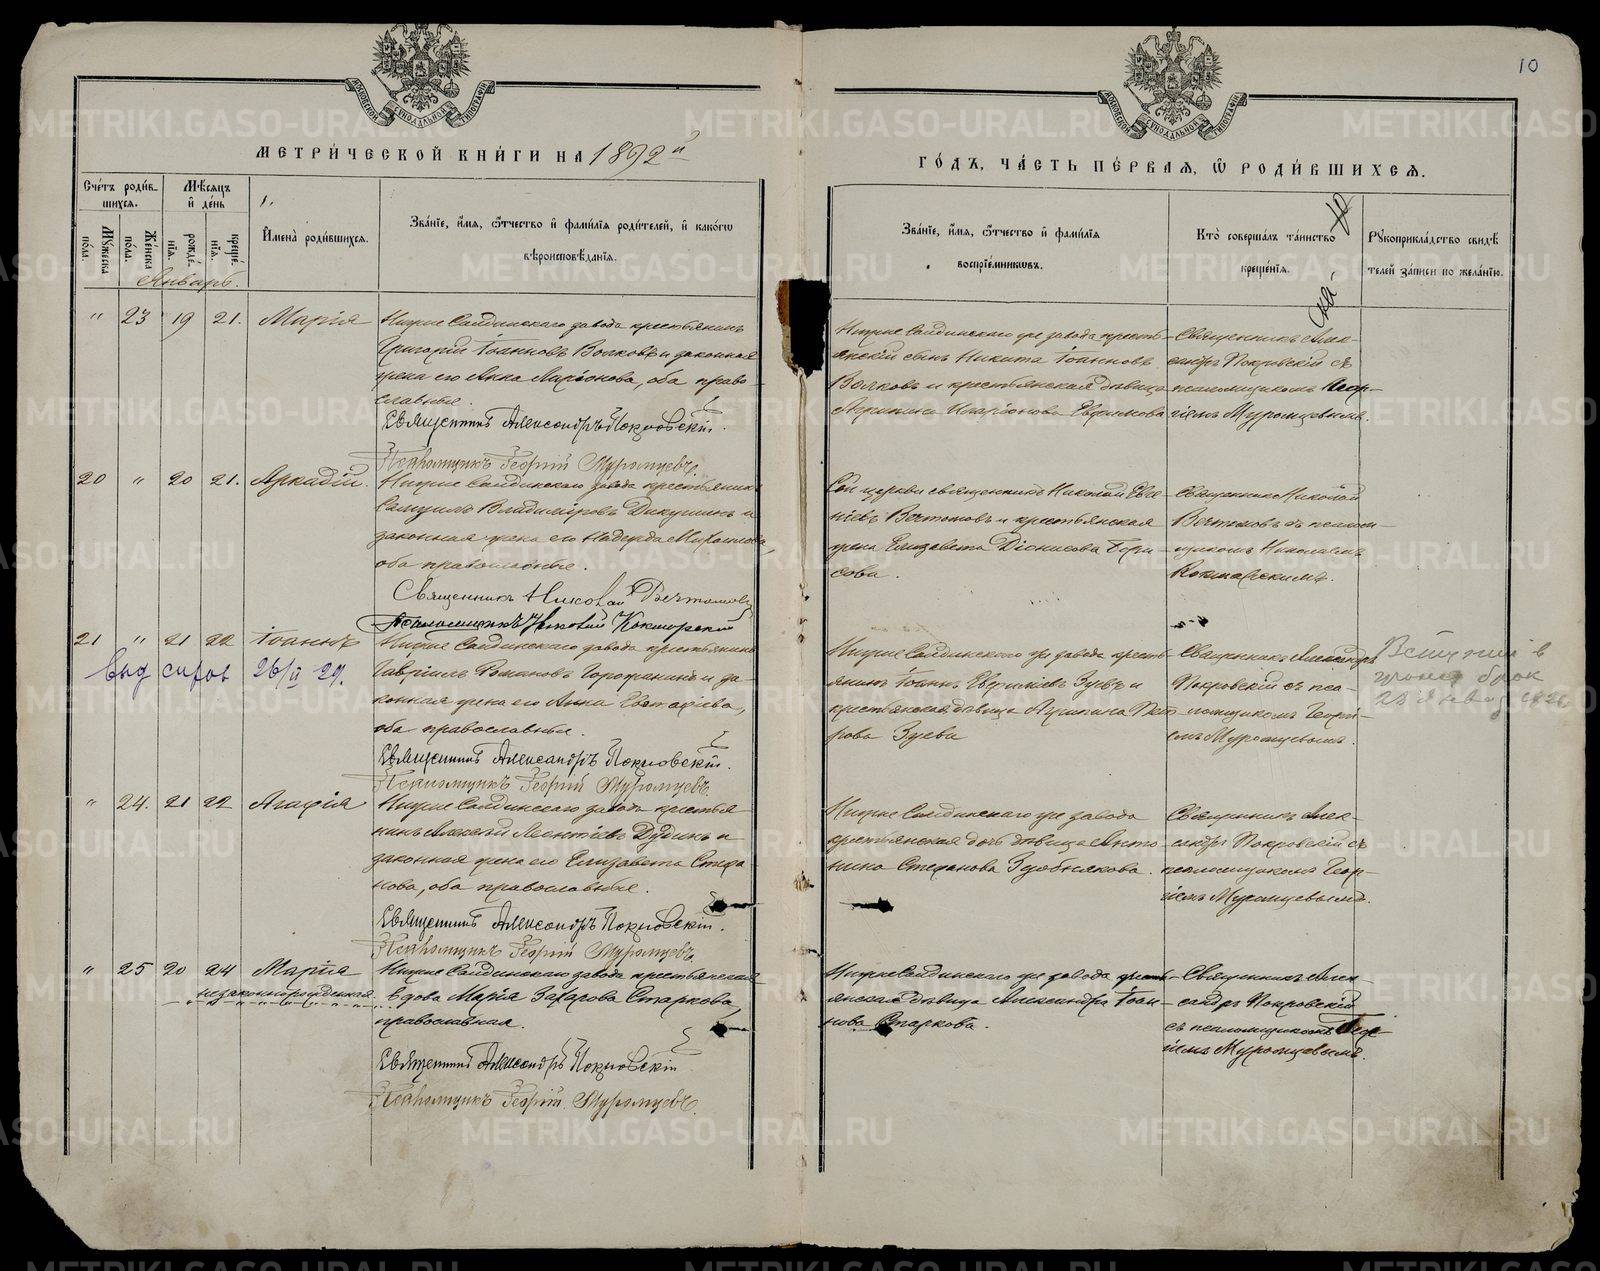 10
МЕТРИ́ЧЕСКОЙ КНИ́ГИ НА 1892 й
ГО́ДЪ, ЧА́СТЬ ПЕ́РВАЯ, Ѿ РОДИ́ВШИХСЯ.
Сче́тъ роди́в-
шихся.
Мѣ́сяцъ
и҆ де́нь
Мꙋжеска по́ла.
Же́нска по́ла.
рожде́-
нїѧ.
креще́-
нїѧ.
1.
И҆мена̀ роди́вшихся.
Зва́нїе, и҆́мѧ, ѻ҆́тчество и҆ фами́лїѧ роди́телей, и҆ како́гѡ
вѣроисповѣ́данїѧ.
Зва́нїе, и҆́мѧ, ѻ҆́тчество и҆ фами́лїѧ
воспрїе́мникѡвъ.
Кто̀ соверша́лъ та́инство
креще́нїѧ.
Рꙋкоприкла́дство свидѣ́
телей за́писи по жела́нїю.
Январь.
" 23 19 21. Марія
Нижне Салдинскаго завода крестьянинъ
Григорій Іоанновъ Волковъ и законная
жена его Анна Ларіонова, оба право-
славные.
Священникъ Александръ Покровскій.
Псаломщикъ Георгій Муромцевъ.
Нижне Салдинскаго же завода кресть-
янскій сынъ Никита Іоанновъ
Волковъ и крестьянская дѣвица
Агрипина Иларіонова
Священникъ Алек-
сандръ Покровскій съ
псаломщикомъ Геор-
гіемъ Муромцевымъ.
20 " 20 21. Аркадій.
Нижне Салдинскаго завода крестьянинъ
Самуилъ Владиміровъ Дикушинъ и
законная жена его Надежда Михайлова,
оба православные.
Священникъ Николай Вечтомовъ
Псаломщикъ Николай Кокшарскій
Сей церкви священникъ Николай Евге-
ніевъ Вечтомовъ и крестьянская
жена Елизавета Діонисова Гори-
сова.
Священникъ Николай
Вечтомовъ съ псалом-
щикомъ Николаемъ
Кокшарскимъ.
21 " 21 22 Іоаннъ
Выд 26/II 29.
Нижне Салдинскаго завода крестьянинъ
Гавріилъ Романовъ и за-
конная жена его Анна Евстафіева,
оба православные.
Священникъ Александръ Покровскій.
Псаломщикъ Георгій Муромцевъ.
Нижне Салдинскаго же завода кресть-
янинъ Іоаннъ Зуевъ и
крестьянская дѣвица Агрипина Пет-
рова Зуева
Священникъ Александръ
Покровскій съ пса-
ломщикомъ Георгі-
емъ Муромцевымъ.
Вступил в
брак
" 24. 21 22 Агафія
Нижне Салдинскаго завода крестья-
нинъ Алексѣй Леонтіевъ Дудинъ и
законная жена его Елизавета Стефа
нова, оба православные.
Священникъ Александръ Покровскій.
Псаломщикъ Георгій Муромцевъ.
Нижне Салдинскаго же завода
крестьянская дочь дѣвица Анто-
нина Стефанова Здобнякова.
Священникъ Алек-
сандръ Покровскій съ
псаломщикомъ Геор-
гіемъ Муромцевымъ.
" 25 20 24 Марія
незаконнорожденная.
Нижне Салдинскаго завода крестьянская
вдова Марія Захарова Старкова,
православная.
Священникъ Александръ Покровскій
Псаломщикъ Георгій Муромцевъ.
Нижне Салдинскаго же завода кресть-
янская дѣвица Александра Іоан
нова Старкова.
Священникъ Алек
сандръ Покровскій
съ псаломщикомъ Геор
гіемъ Муромцевымъ.